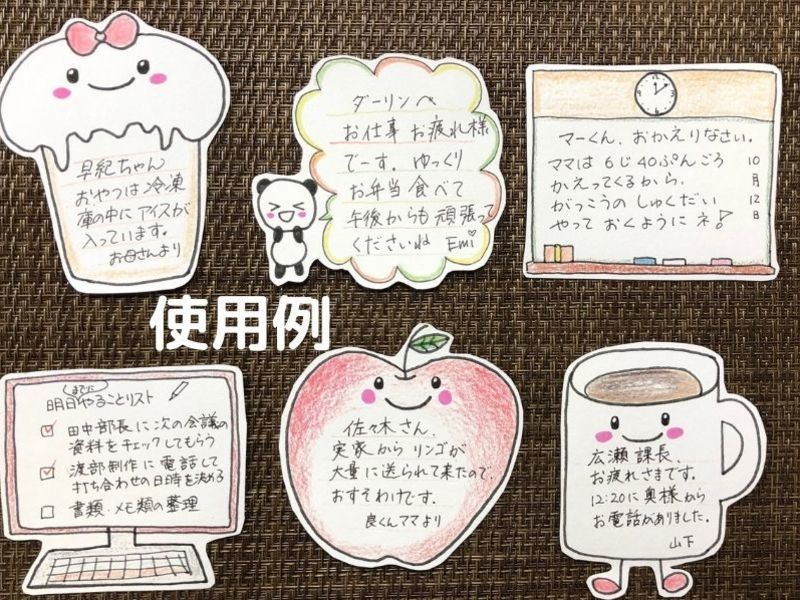 具紀ちゃん
おやつは冷凍
庫の中にアイスが
入っています。
お母さんより
ダーリンへ
お仕事お疲れ様
でーす。ゆっくり
お弁当食べて
午後からも頑張って
くださいね Emi
マーくん、おかえりなさい。
ママは6じ40ぷんごろ
かえってくるから、
がっこうのしゅくだい
やっておくようにネ!
10月12日
使用例
までに
明日やることリスト
田中部長に次の会議の
資料をチェックしてもらう
渡部制作に電話して
打ち合わせの日時を決める
書類・メモ類の整理
佐々木さん、
実家からリンゴが
大量に送られて来たので、
おすそわけです。
良くんママより
広瀬課長、
お疲れさまです。
12:20に奥様から
お電話がありました。
山下